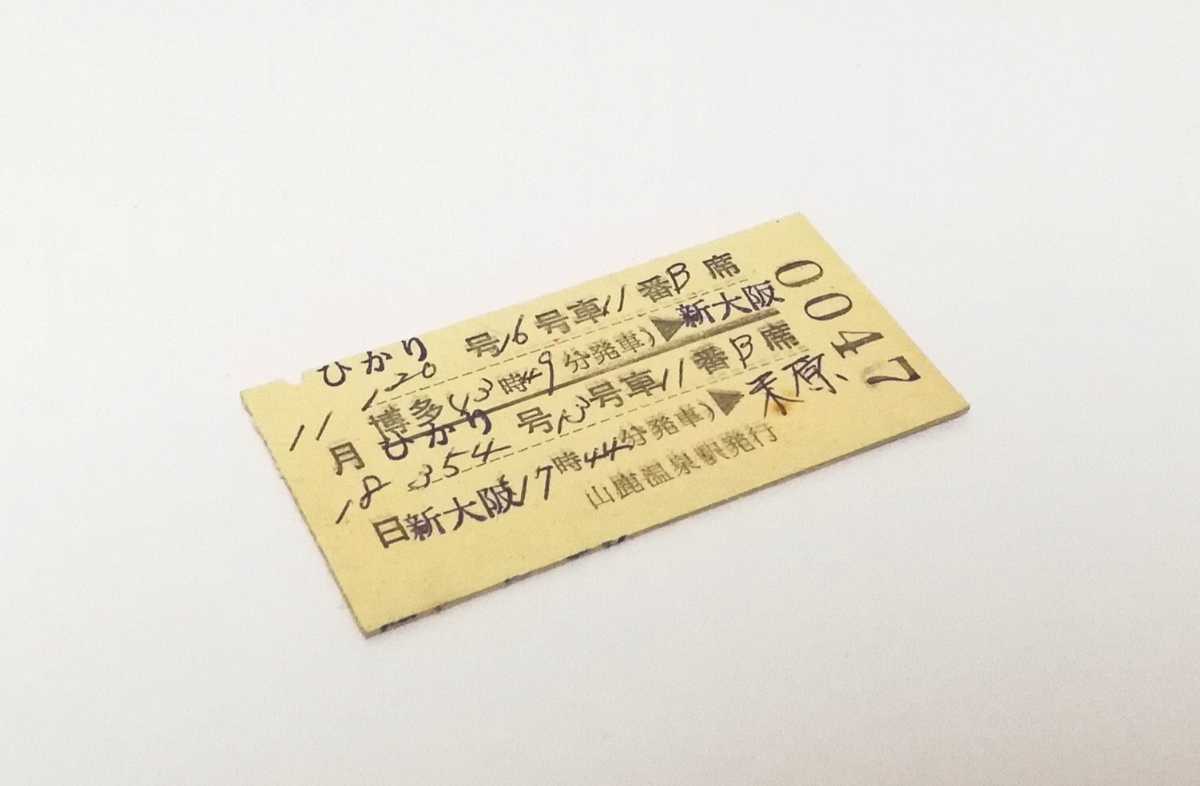 11月18日
ひかり120号16号車11番B席
博多(13時49分発車)▶新大阪
ひかり354号13号車11番B席
新大阪17時44分発車)▶米原
山鹿温泉駅発行
0047